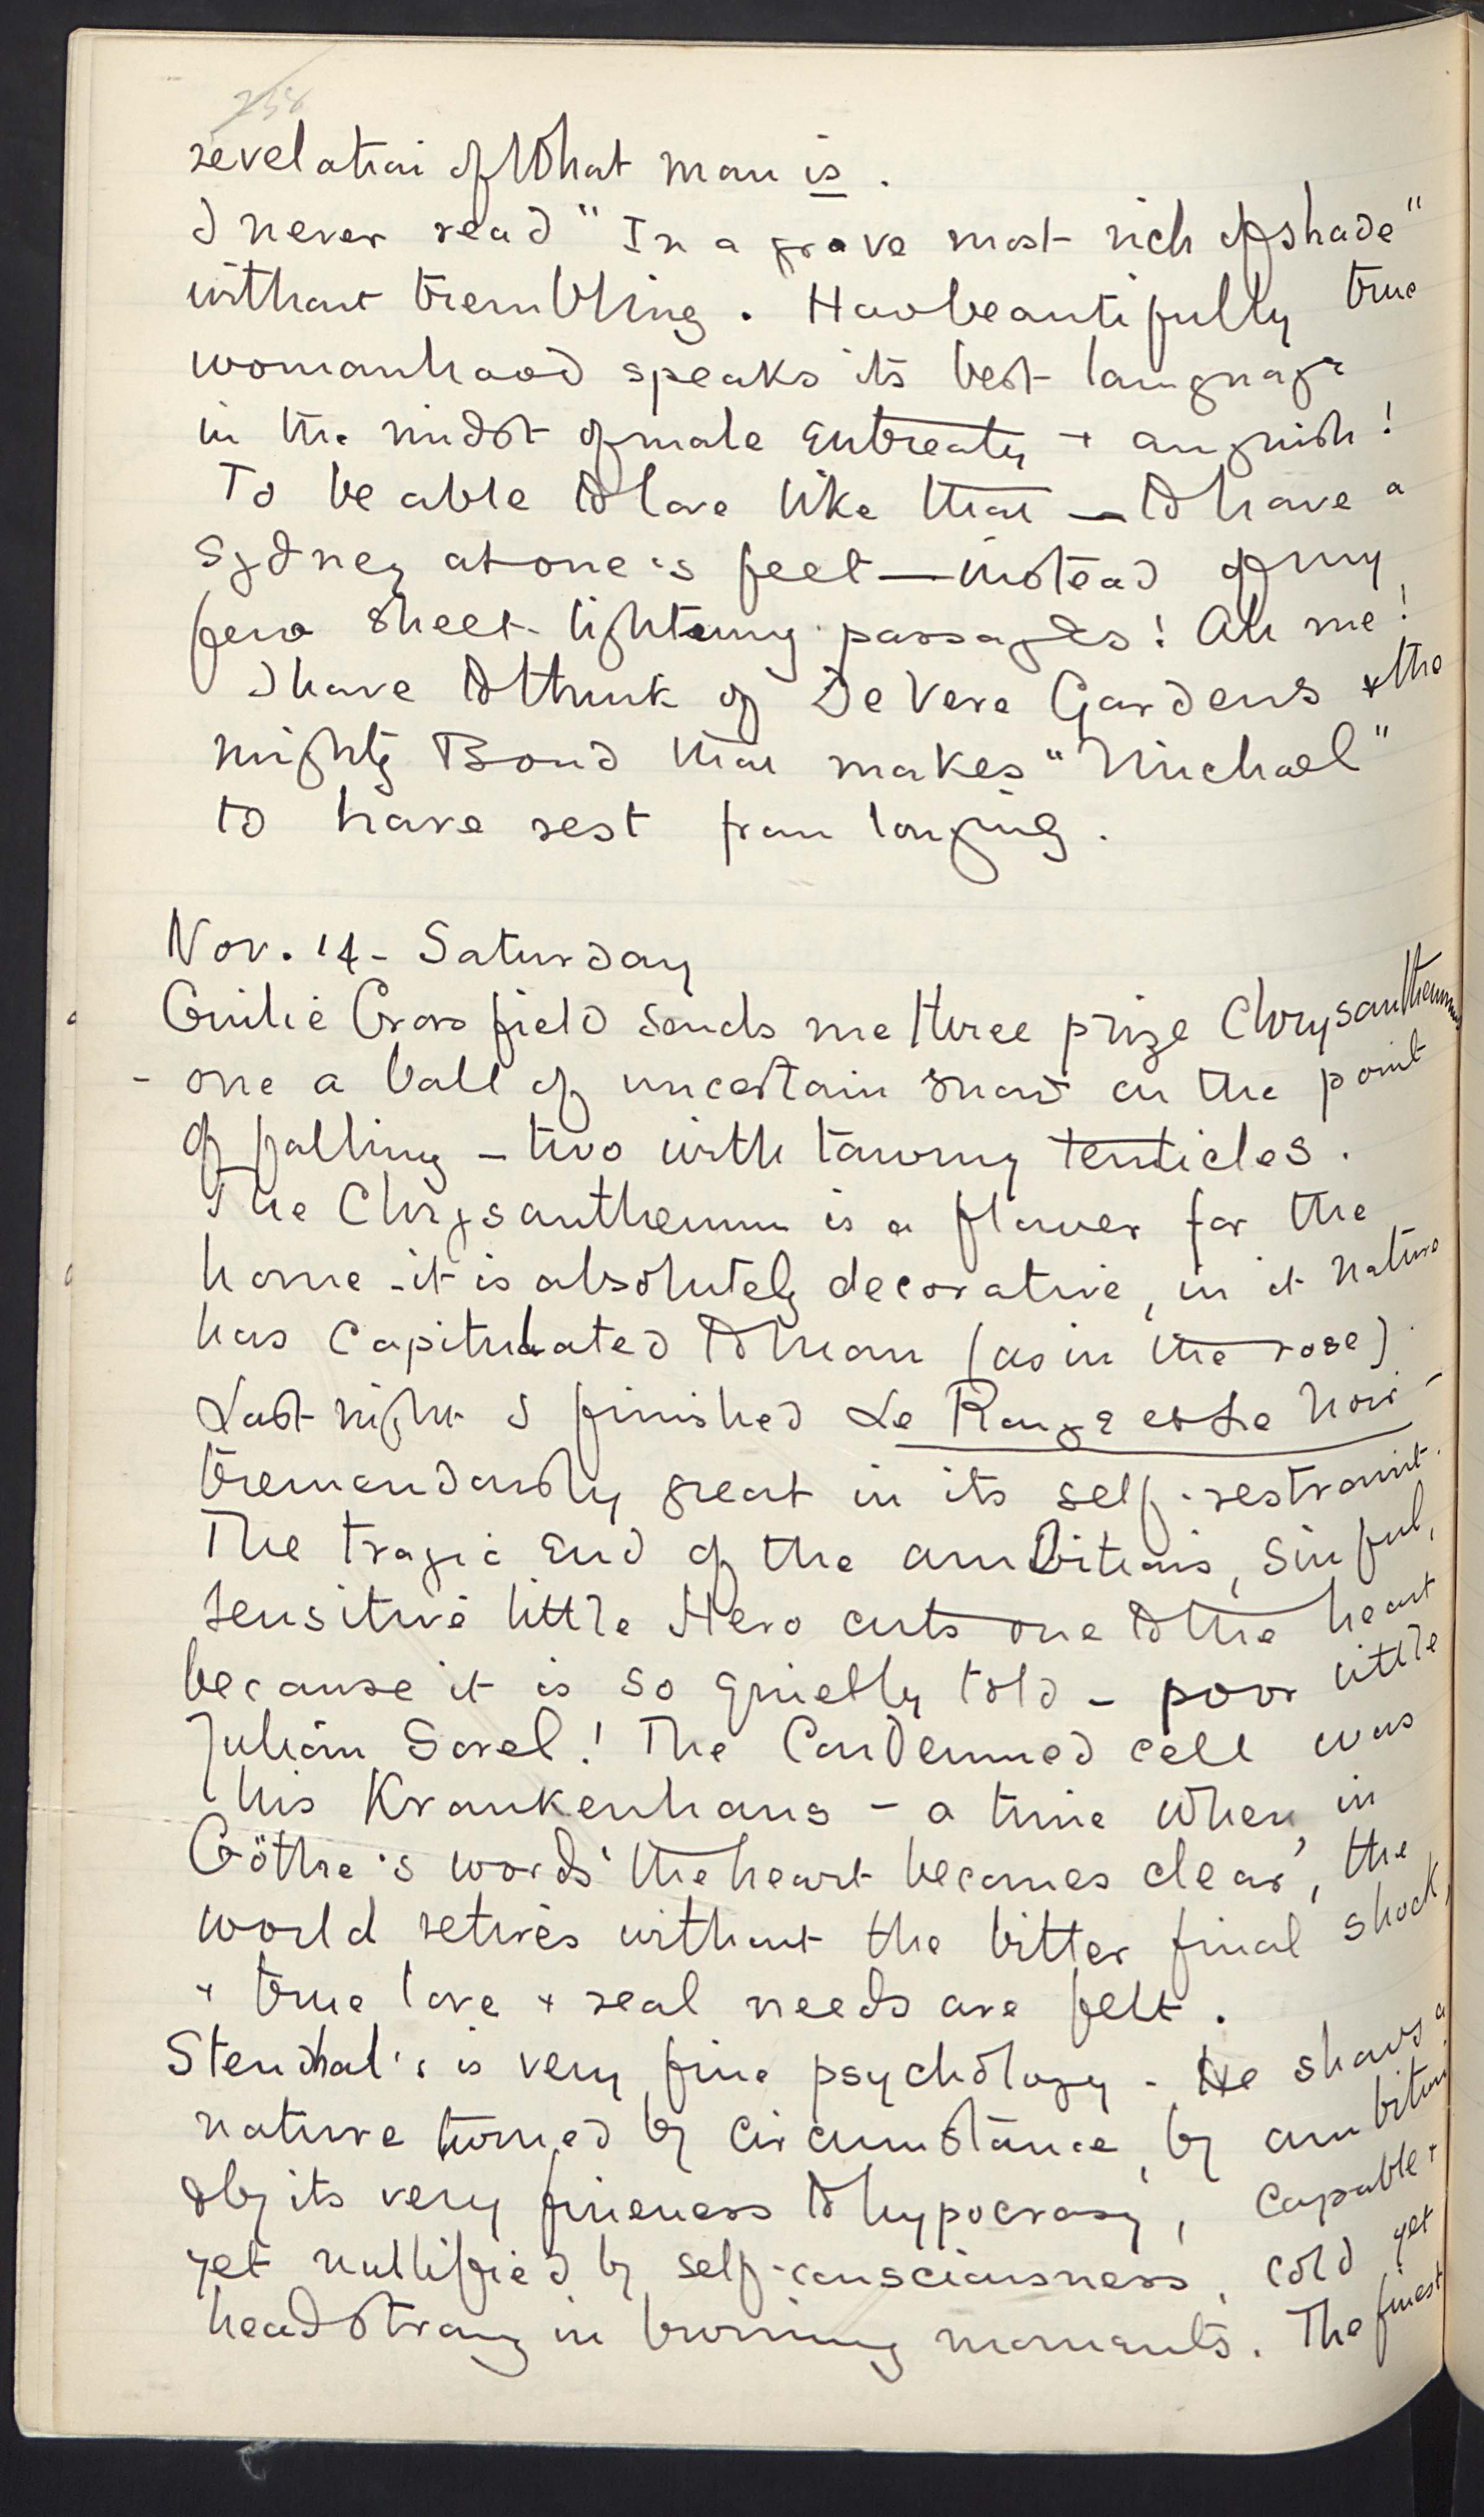 258
revelation of What man is.
I never read "In a grove most rich of shade"
without trembling. How beautifully true
womanhood speaks its best language
in the midst of male entreaty + anguish!
To be able to love like that — to have a
Sydney at one's feet — instead of my
few sheet-lightening passages! Ah me!
I have to think of De Vere Gardens & the
mighty Bond that makes "Michael"
to have rest from longing.
Nov. 14 - Saturday
Emilie Crossfield sends me three prize Chrysanthemums
- one a ball of uncertain snow on the point
of falling - two with tawny tenticles.
The Chrysanthemum is a flower for the
home - it is absolutely decorative, in it nature
has capitulated to man (as in the rose).
Last night I finished Le Rouge et Le Noir -
tremendously great in its self-restraint.
The tragic end of the ambitious, sinful,
sensitive little Hero cuts one to the heart
because it is so quietly told - poor little
Julian Sorel! The Condemned cell was
his Krankenhaus - a time when, in
Göthe's words 'the heart becomes clear', the
world retires without the bitter final shock,
+ true love + real needs are felt.
Stendhal's is very fine psychology. He shows a
nature turned by circumstance, by ambition
& by its very fineness to hypocrasy, capable &
yet nullified by self-consciousness, cold yet
headstrong in burning moments. The finest